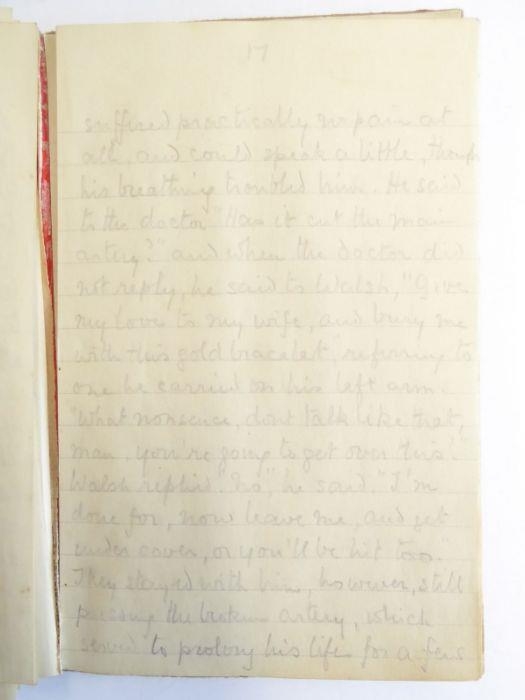 17
suffered practically no pain at
all, and could speak a little, though
his breathing troubled him. He said
to the doctor "Has it cut the main
artery?" and when the doctor did
not reply, he said to Walsh, "Give
my love to my wife, and bury me
with this gold bracelet" referring to
one he carried on his left arm.
"What nonsence, dont talk like that,
man, you're going to get over this!"
Walsh replied. "No", he said. "I'm
done for, now leave me, and get
under cover, or you'll be hit too."
They stayed with him, however, still
pressing the broken artery, which
served to prolong his life for a few